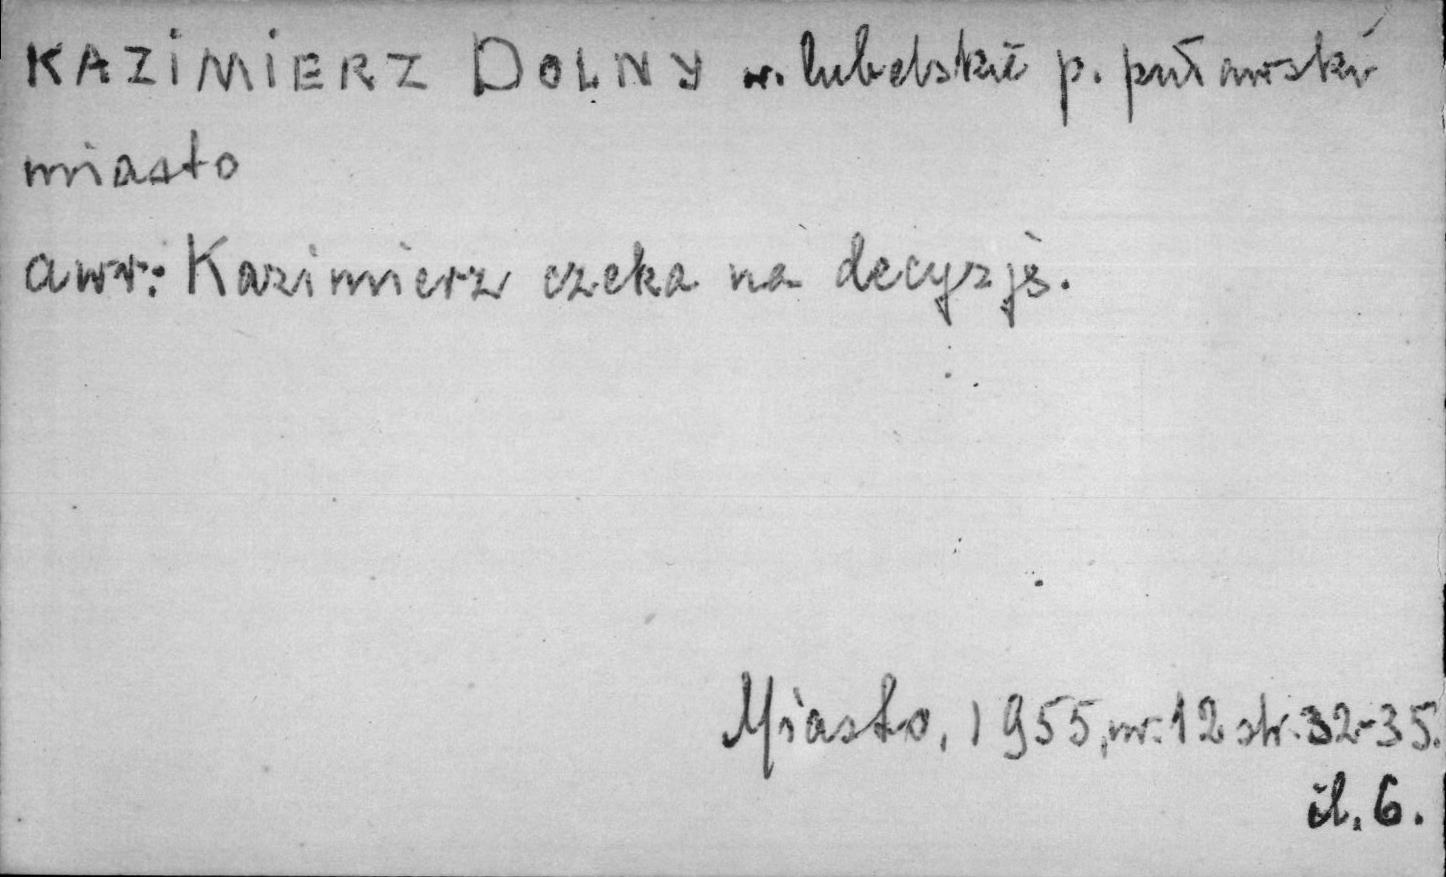 KAZIMIERZ DOLNY w. lubelskie p. puławski
miasto
awr: Kazimierz czeka na decyzję.
Miasto, 1955, nr. 12 str. 32-35.
il. 6.